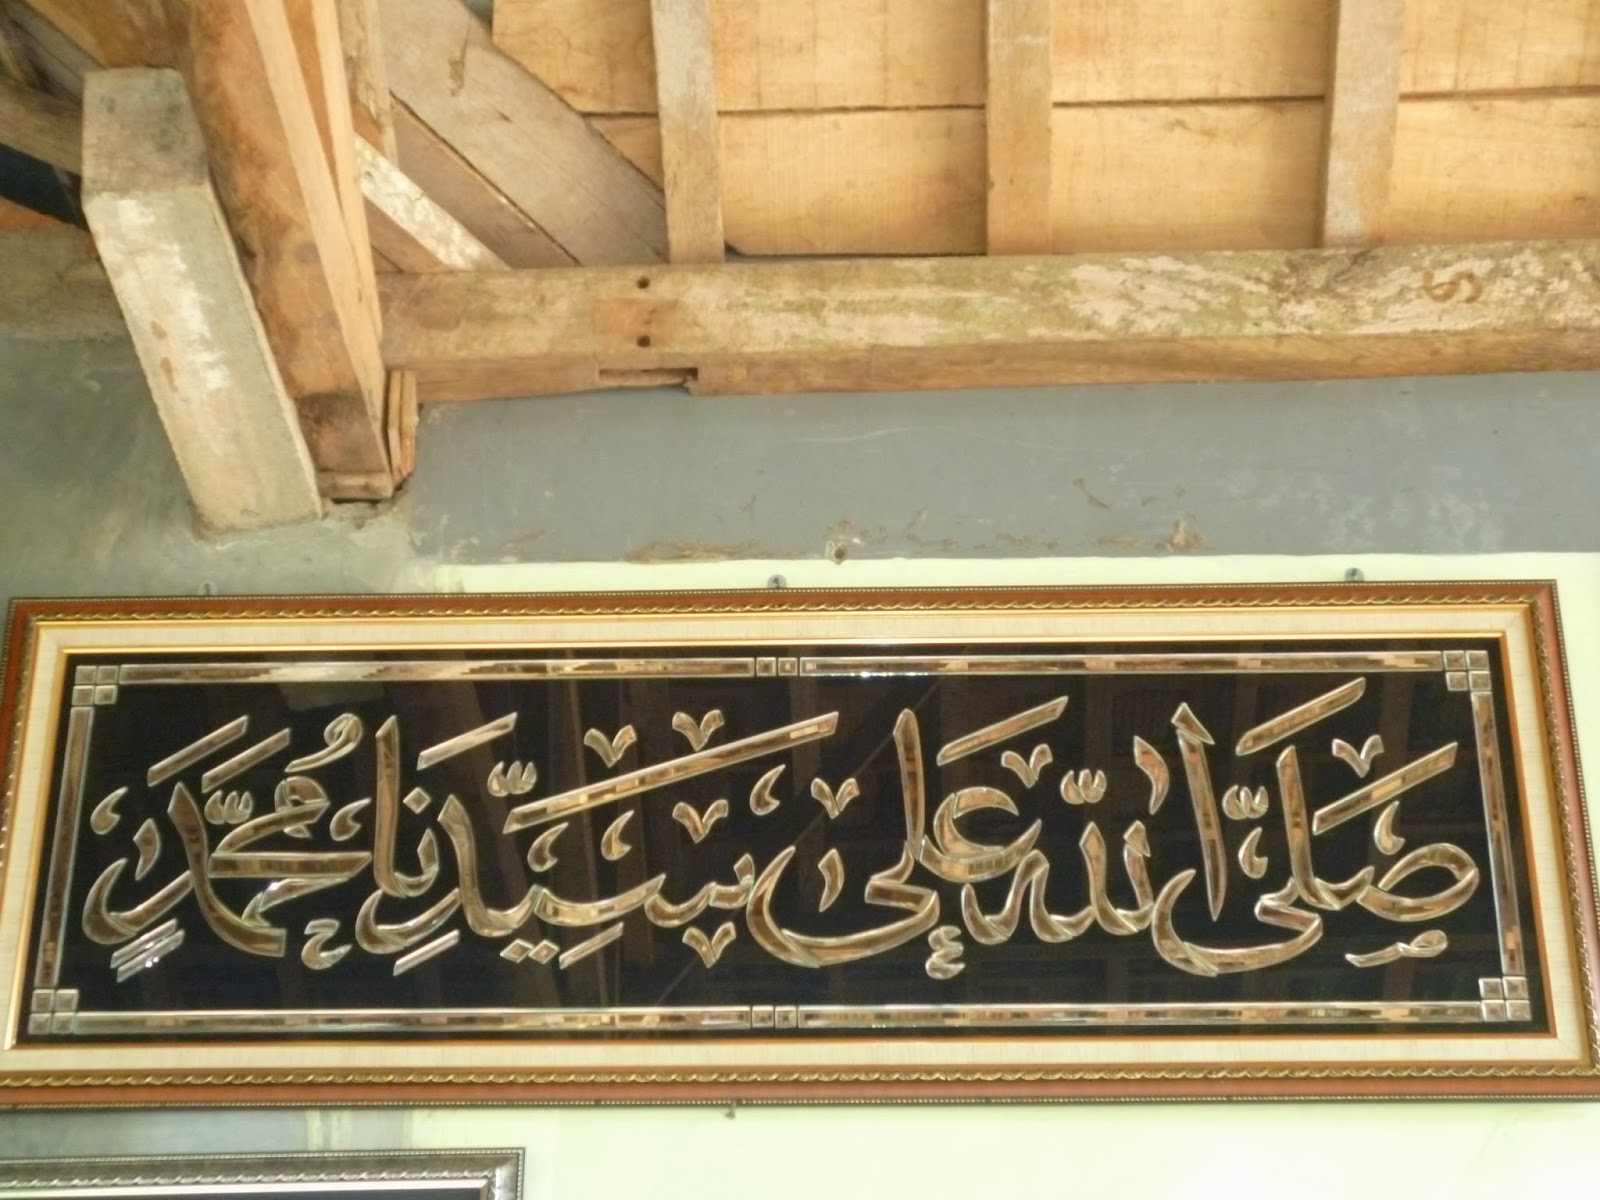 صَلَّى اللهُ عَلَى سَيِّدِنَا مُحَمَّدٍ